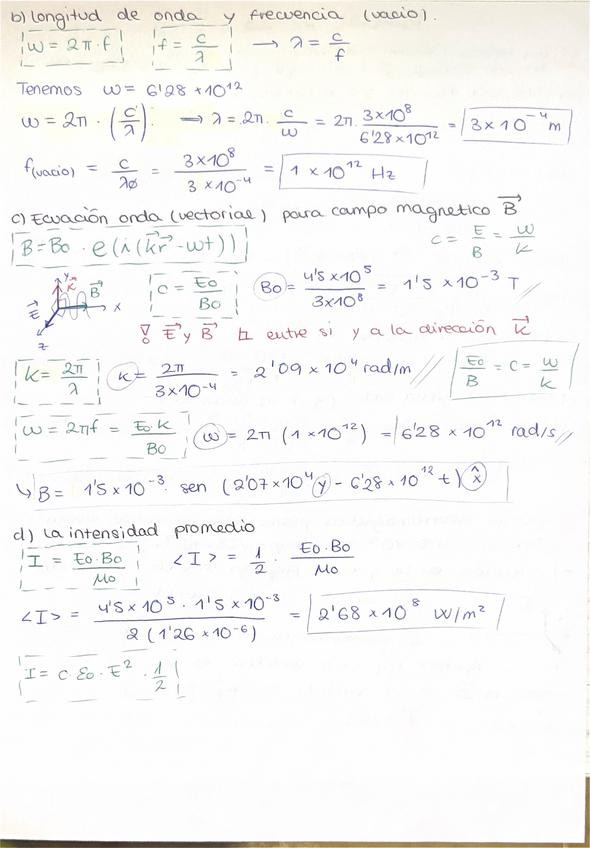 b) longitud de onda y frecuencia (vacio).
ω = 2π·f    f = c/λ → λ = c/f
Tenemos ω = 6'28 × 10¹²
ω = 2π · (c/λ): → λ = 2π · c/ω = 2π · 3×10⁸/6'28×10¹² = 3×10⁻⁴ m
f(vacio) = c/λø = 3×10⁸/3×10⁻⁴ = 1×10¹² Hz
c) Ecuación onda (vectorial) para campo magnetico B⃗
B = Bo · e(i(k⃗r⃗ - ωt))    c = E/B = ω/k
y K⃗ B⃗ x E⃗ z    c = Eo/Bo    Bo = 4'5×10⁵/3×10⁸ = 1'5×10⁻³ T //
! E⃗ y B⃗ ⊾ entre si y a la dirección k⃗
K = 2π/λ    k = 2π/3×10⁻⁴ = 2'09×10⁴ rad/m //    Eo/B = c = ω/k
ω = 2πf = Eo·k/Bo    ω = 2π (1×10¹²) = 6'28×10¹² rad/s //
↳ B = 1'5×10⁻³ · sen (2'07×10⁴ y - 6'28×10¹² t) x̂
d) La intensidad promedio
I = Eo·Bo/μo    <I> = 1/2 · Eo·Bo/μo
<I> = 4'5×10⁵ · 1'5×10⁻³/2 (1'26×10⁻⁶) = 2'68×10⁸ W/m²
I = c·εo·E² · 1/2